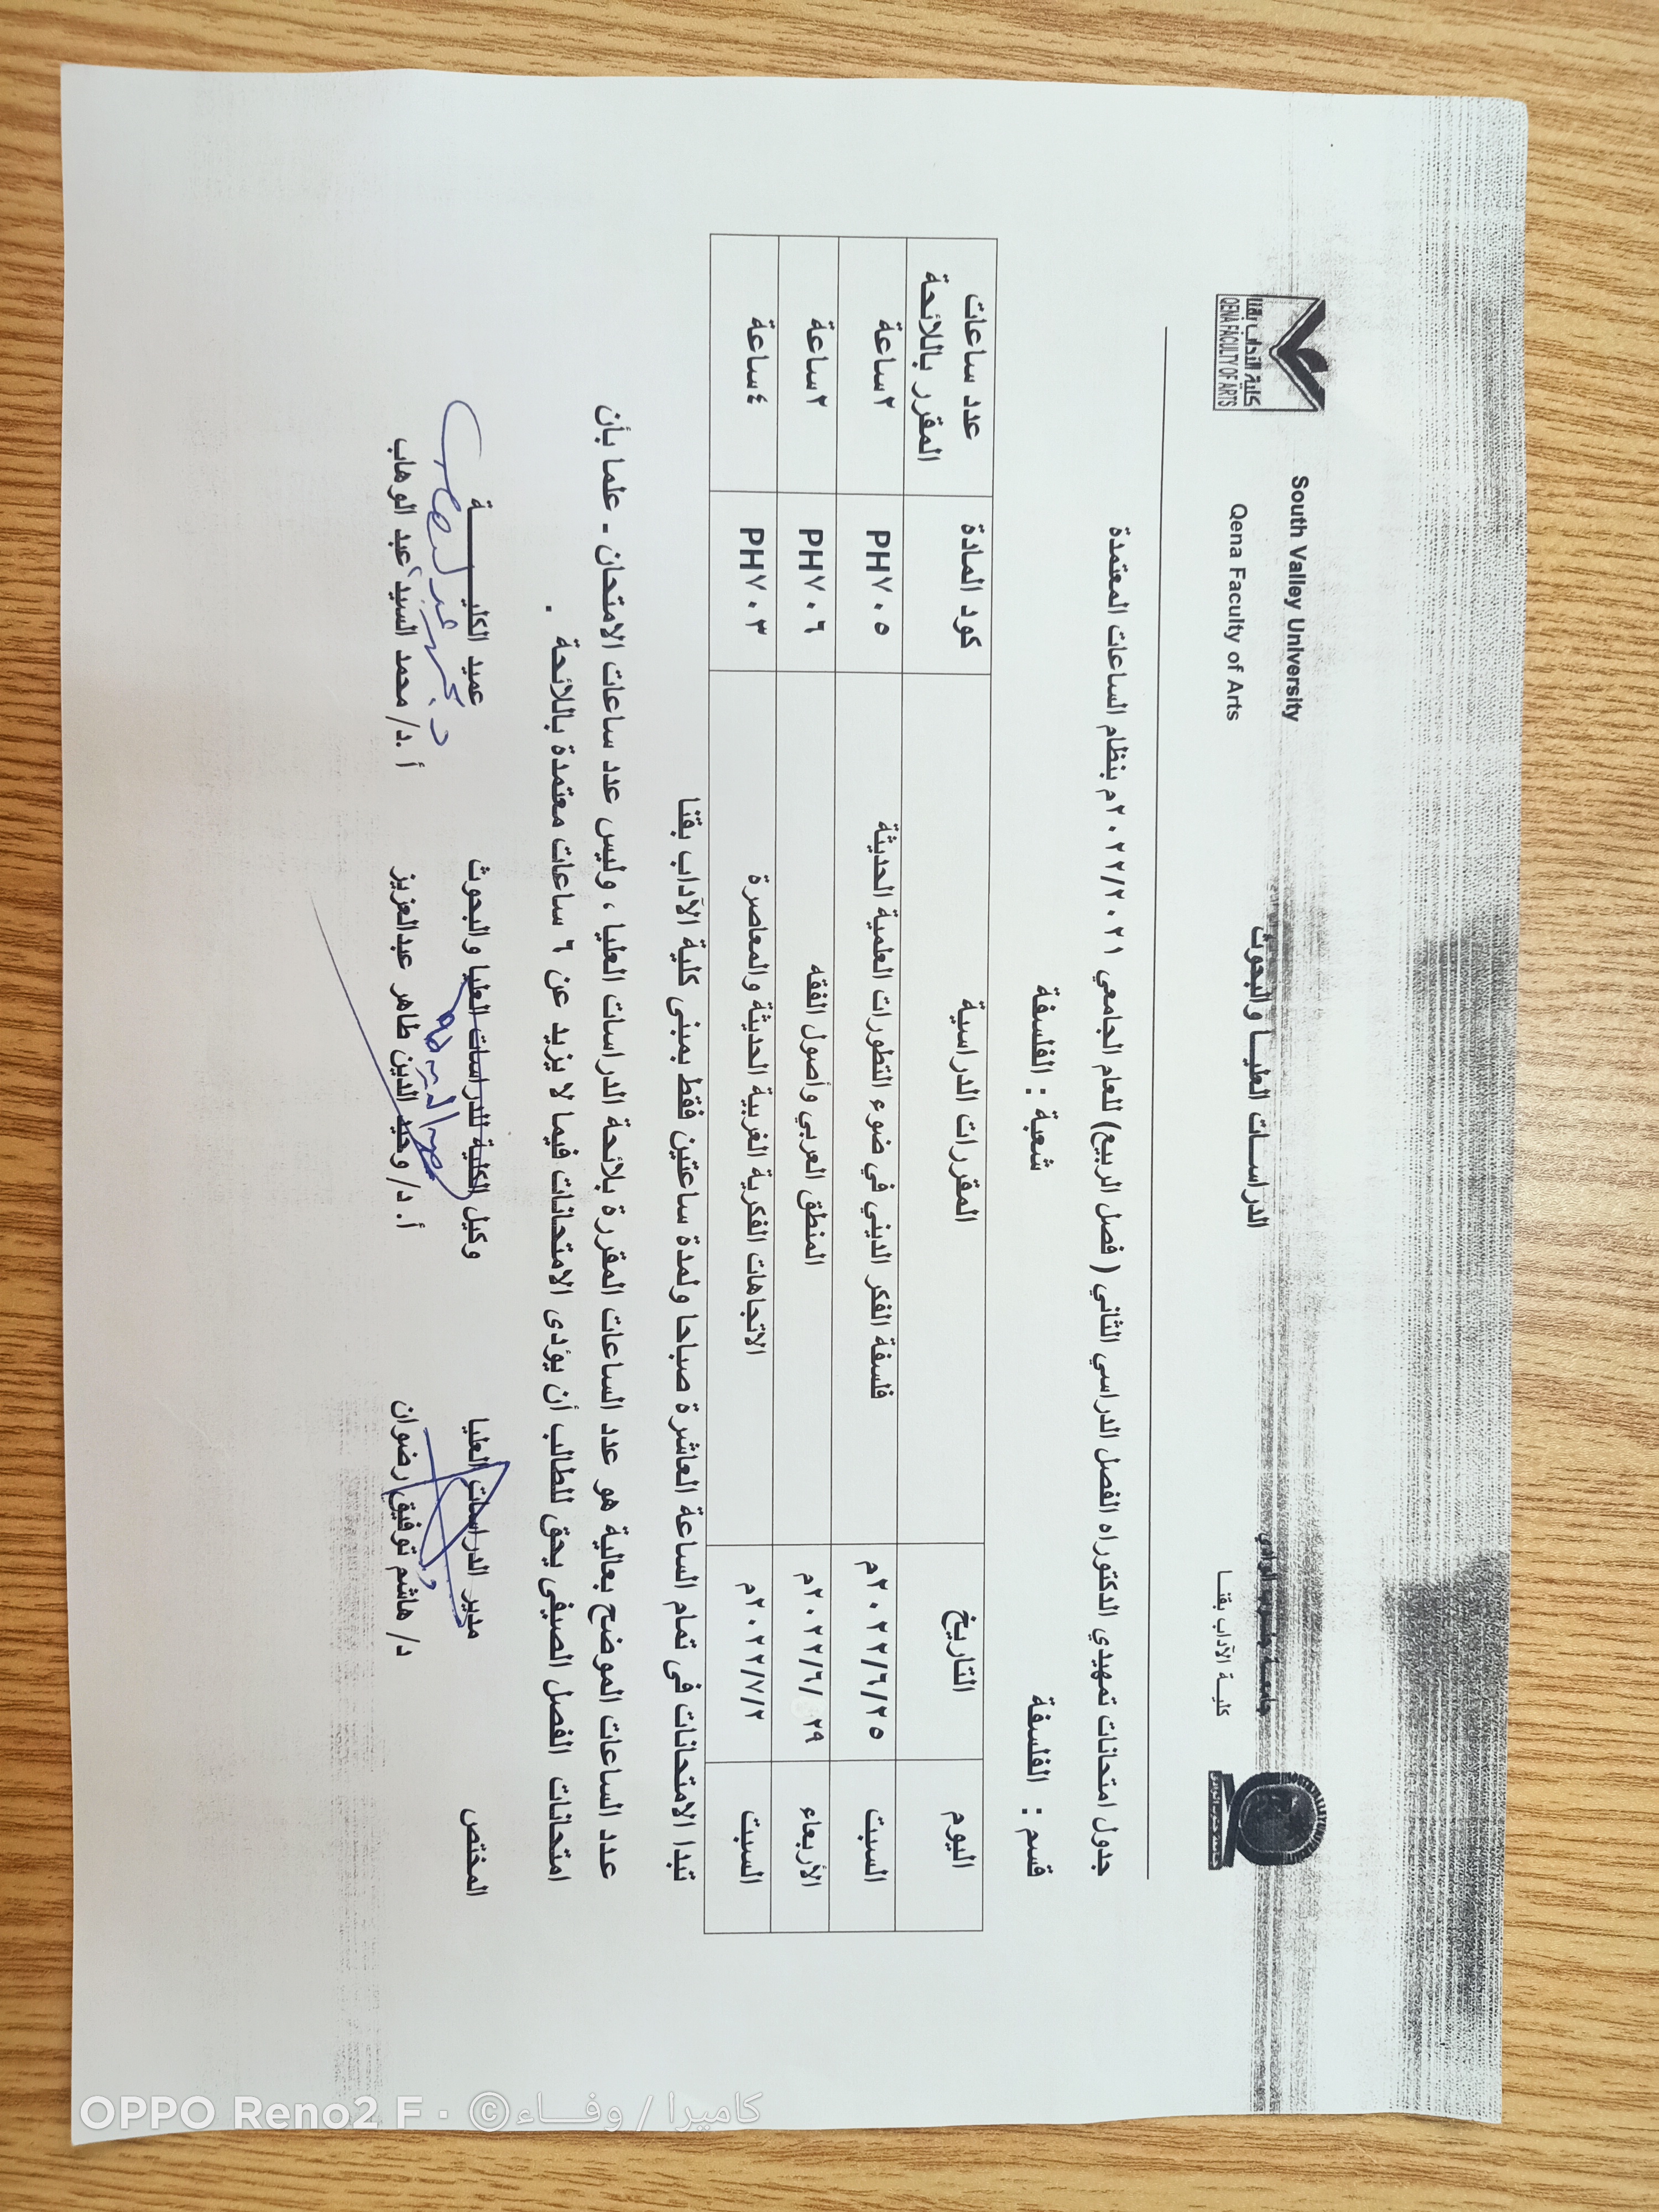 جامعـــة جنـــوب الوادي
الدراســات العليــا والبحوث
South Valley University
كليــة الآداب بقنــا
Qena Faculty of Arts
كلية الآداب بقنا
QENA FACULTY OF ARTS
جدول امتحانات تمهيدي الدكتوراه الفصل الدراسي الثاني ( فصل الربيع) للعام الجامعي ٢٠٢٢/٢٠٢١م بنظام الساعات المعتمدة
قسم : الفلسفة شعبة : الفلسفة
اليوم التاريخ المقررات الدراسية كود المادة عدد ساعات المقرر باللائحة
السبت ٢٠٢٢/٦/٢٥م فلسفة الفكر الديني في ضوء التطورات العلمية الحديثة PH٧٠٥ ٢ساعة
الأربعاء ٢٠٢٢/٦/٢٩م المنطق العربي وأصول الفقه PH٧٠٦ ٢ساعة
السبت ٢٠٢٢/٧/٢م الاتجاهات الفكرية الغربية الحديثة والمعاصرة PH٧٠٣ ٤ساعة
تبدا الامتحانات فى تمام الساعة العاشرة صباحا ولمدة ساعتين فقط بمبنى كلية الآداب بقنا
عدد الساعات الموضح بعالية هو عدد الساعات المقررة بلائحة الدراسات العليا ، وليس عدد ساعات الامتحان - علما بأن
امتحانات الفصل الصيفى يحق للطالب أن يؤدى الامتحانات فيما لا يزيد عن ٦ ساعات معتمدة باللائحة .
المختص مدير الدراسات العليا وكيل الكلية للدراسات العليا والبحوث عميد الكليـــــــة
د/ هاشم توفيق رضوان أ. د/ وحيد الدين طاهر عبدالعزيز أ .د/ محمد السيد عبد الوهاب
OPPO Reno2 F · © كاميرا / وفــــاء